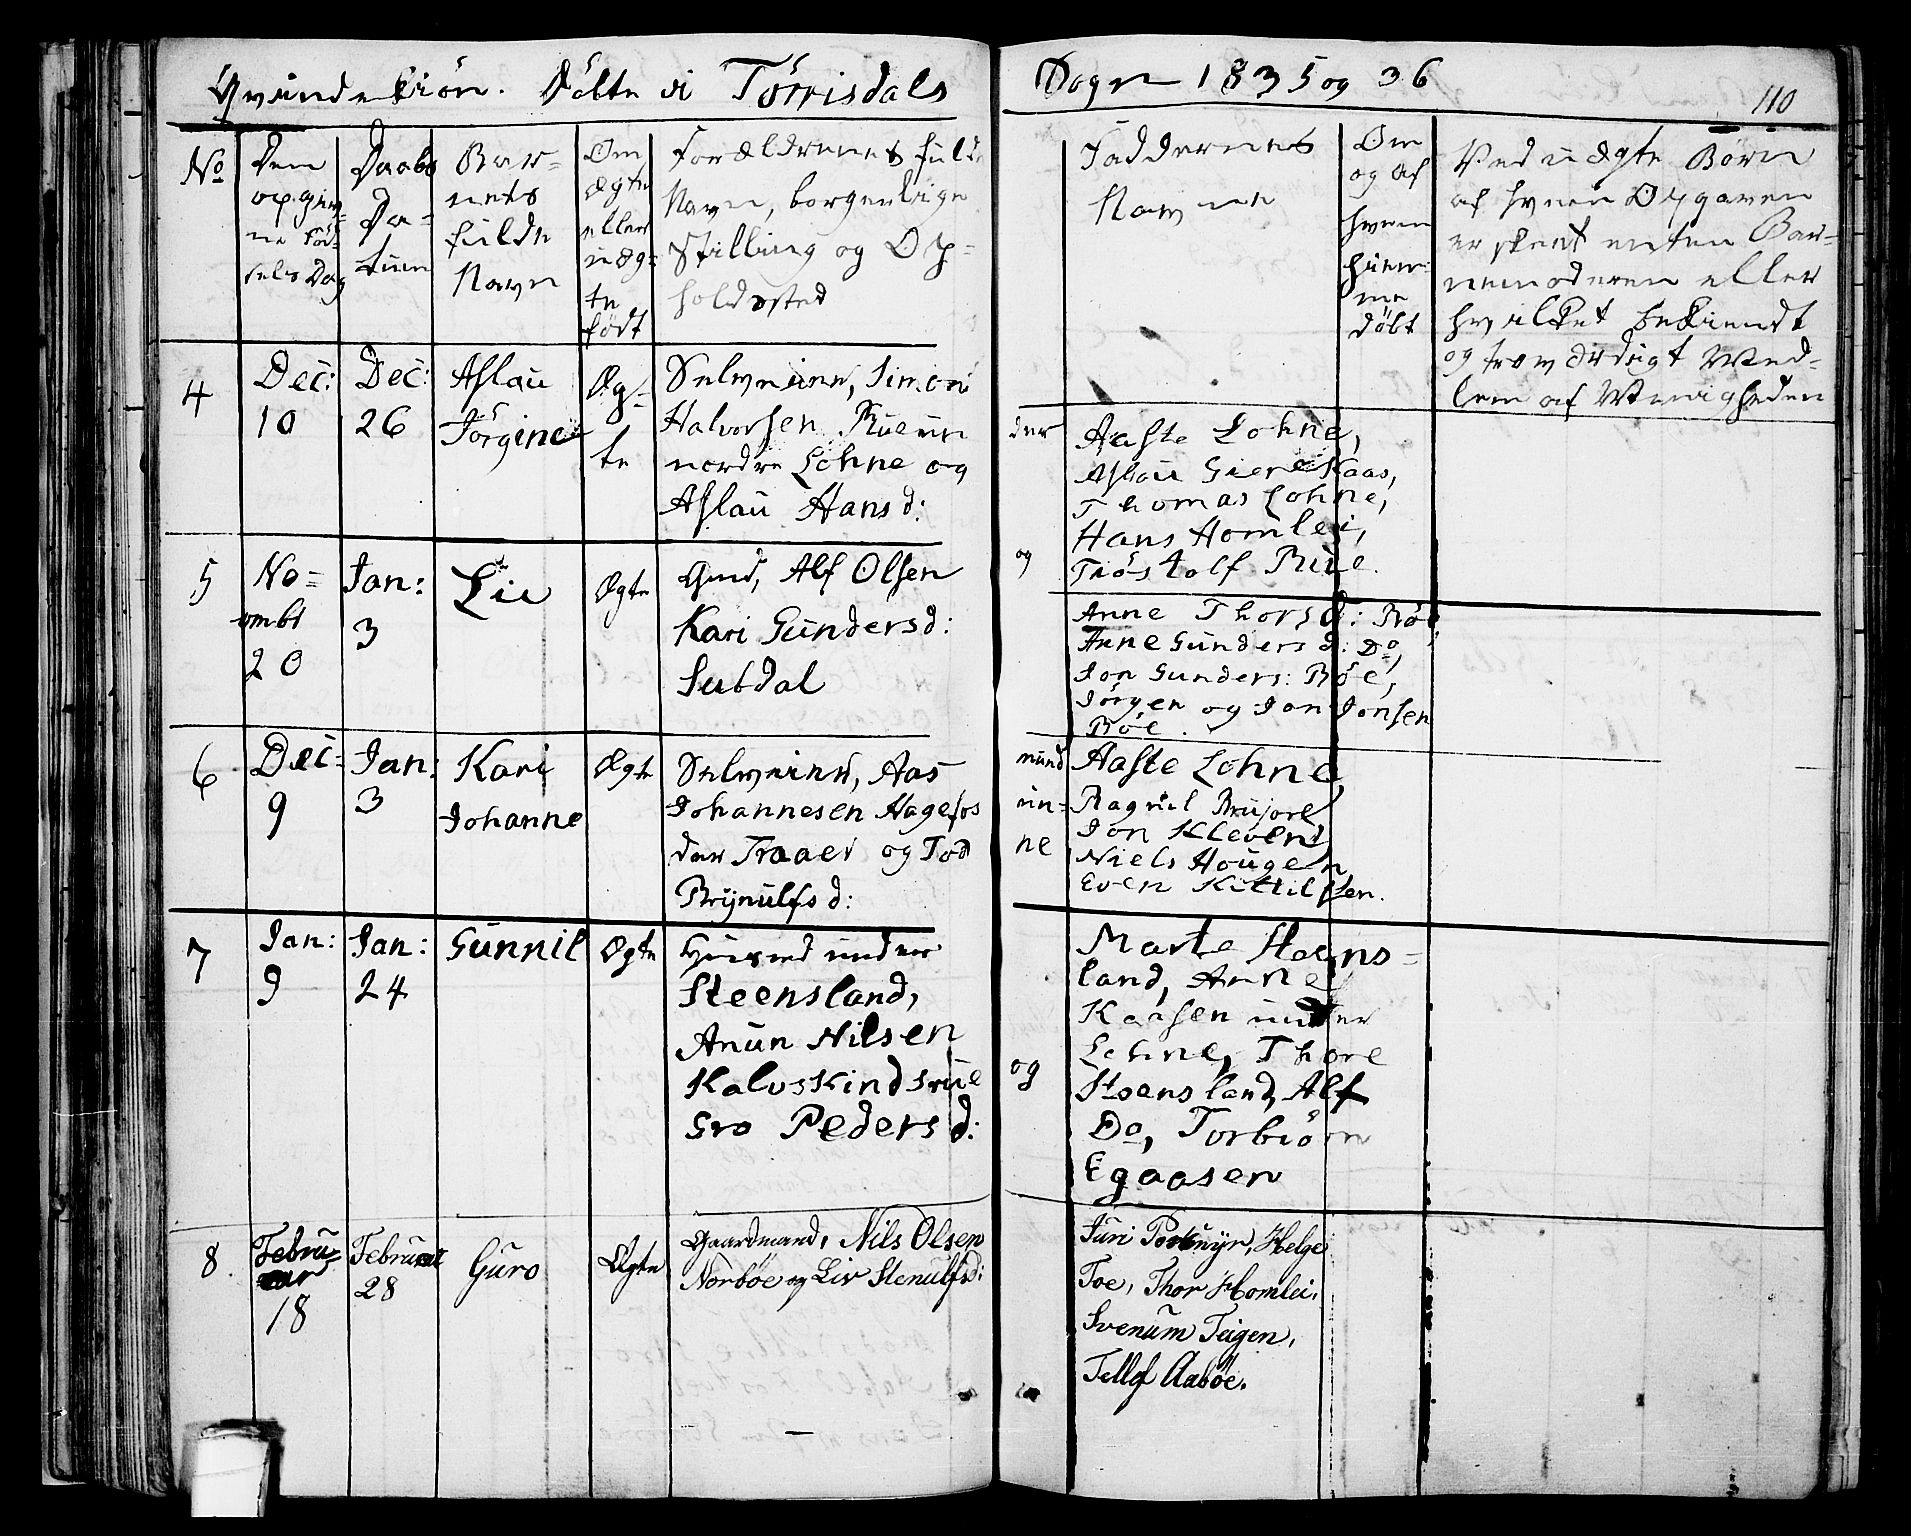 Qvindekiön. Döbte i Törrisdals Sogn 1835 og 36
110
No
Den
opgiv-
ne Föd-
sels Dag
Daabs
Da-
tum
Bar-
nets
fulde
Navn
Om
ægte
eller
uæg-
te
födt
Forældrenes fulde
Navn, borgerlige
Stilling og Op-
holdssted
Faddernes
Navne
Om
og af
hvem
hiem-
me
döbt
Ved uægte Börn
af hvem Opgaven
er skeet enten Bar-
nemoderen eller
hvilket bekiendt
og troværdigt Med-
lem af Menigheden
4
Dec:
10
Dec:
26
Aslau
Jörgine
Æg-
te
Selveiere, Simon
Halvorsen Rue un
der
nordre Lohne og
Aslau Hansd:
Aaste Lohne,
Aslau Giere Kaas,
Thomas Lohne,
Hans Homlei,
Tiöstolf Rue.
5
No-
vembr
20
Jan:
3
Liv
Ægte
Gmd, Alf Olsen
og
Kari Gundersd:
Subdal
Anne Thorsd: Röe
Anne Gundersd: Do,
Jon Gunders: Röe,
Jörgen og Jon Jonsen
Röe.
6
Dec:
9
Jan:
3
Kari
Johanne
Ægte
Selveiere, Aas
mund
Johannesen Hagefos
un-
der Traaei og Tod
ne
Brynulfsd:
Aaste Lohne
Ragnil Brujore
Jon Kleven,
Niels Hougen,
Even Kittilsen.
7
Jan:
9
Jan:
24
Gunnil
Ægte
Huusmd under
Steensland,
Anun Nilsen
Kalvskindsrue
og
Gro Pedersd:
Marte Heens-
land, Anne
Kaasen under
Lohne, Thore
Steensland, Alf
Do, Torbiörn
Egaasen
8
Febru-
ar
18
Februar
28
Guro
Ægte
Gaardmand, Nils Olsen
Norböe og Liv Stenulfsd:
Juri Postmyr, Helge
Toe, Thor Homlei,
Svenum Teigen,
Tellef Aaböe.